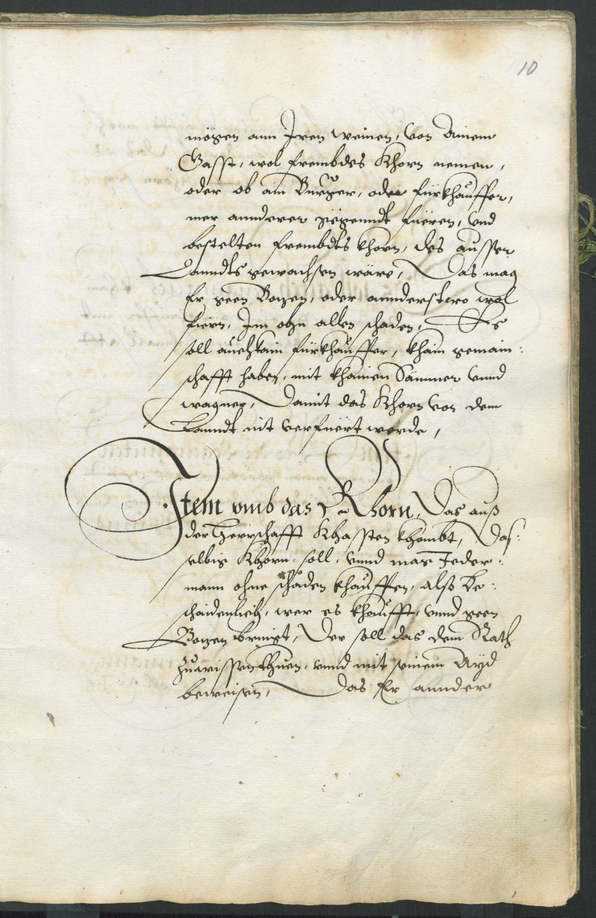 10
mögen ann Iren weinen, von ainem
Gasst, wol frembdes Khorn nemen,
oder ob ain Burger, oder fürkhauffer,
mer annderer gegenndt fueren, vnd
bestelten frembdts khorn, des ausser
Lanndts gewachsen wäre, Das mag
Er geen Bozen, oder annderstwo wol
füern, Im ohn allen schaden, Es
soll auch kain fürkhauffer, khain gemain-
schafft haben, mit khainen Sämmer vnnd
wagner, Damit das Khorn von dem
Lanndt nit verfuert werde,
Item vmb das Khorn, Das auß
der Herrschafft Khassten khombt, Das-
selbig Khorn, soll, vnnd mag Jeder-
mann ohne schaden khauffen, alß be-
schaidenlich, wer es khaufft, vnnd geen
Bozen bringt, Der soll das dem Rath
zuwissen thuen, vnnd mit seinem Ayd
beweisen, Das Er annder